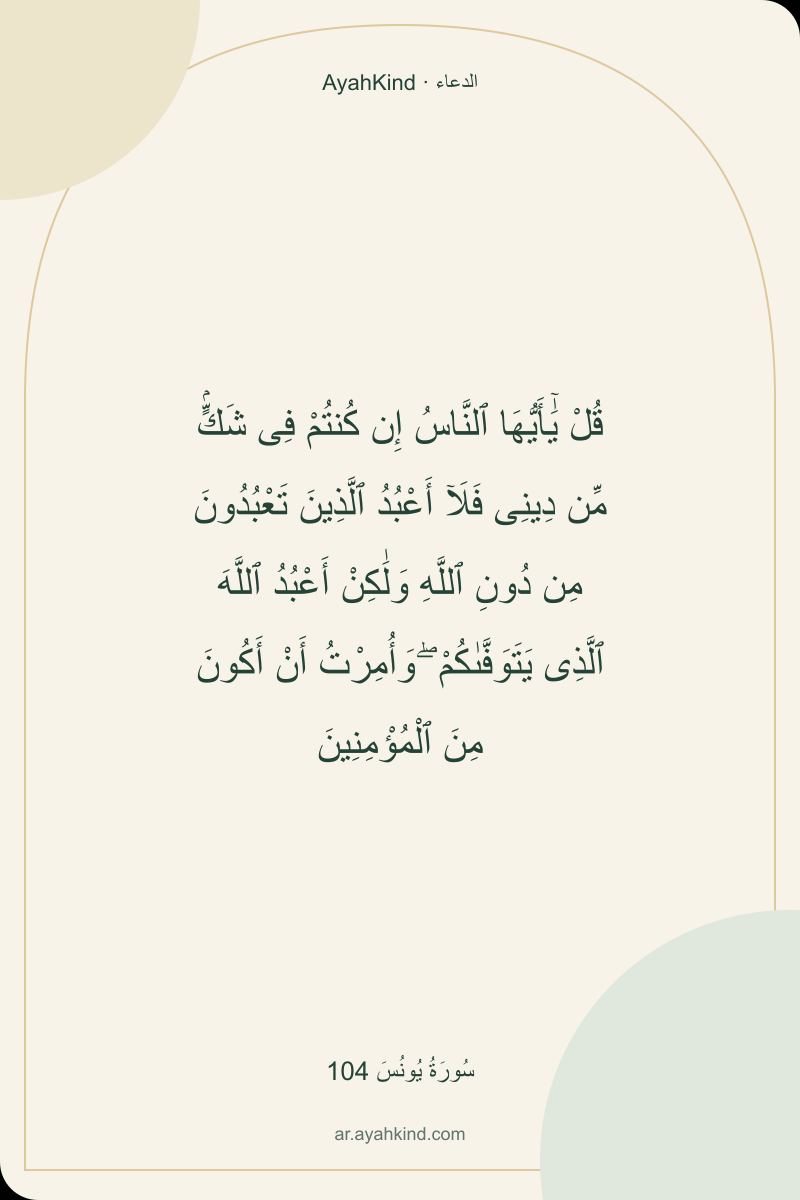 AyahKind · الدعاء
قُلْ يَٰٓأَيُّهَا ٱلنَّاسُ إِن كُنتُمْ فِى شَكٍّۢ
مِّن دِينِى فَلَآ أَعْبُدُ ٱلَّذِينَ تَعْبُدُونَ
مِن دُونِ ٱللَّهِ وَلَٰكِنْ أَعْبُدُ ٱللَّهَ
ٱلَّذِى يَتَوَفَّىٰكُمْ ۖ وَأُمِرْتُ أَنْ أَكُونَ
مِنَ ٱلْمُؤْمِنِينَ
سُورَةُ يُونُسَ 104
ar.ayahkind.com